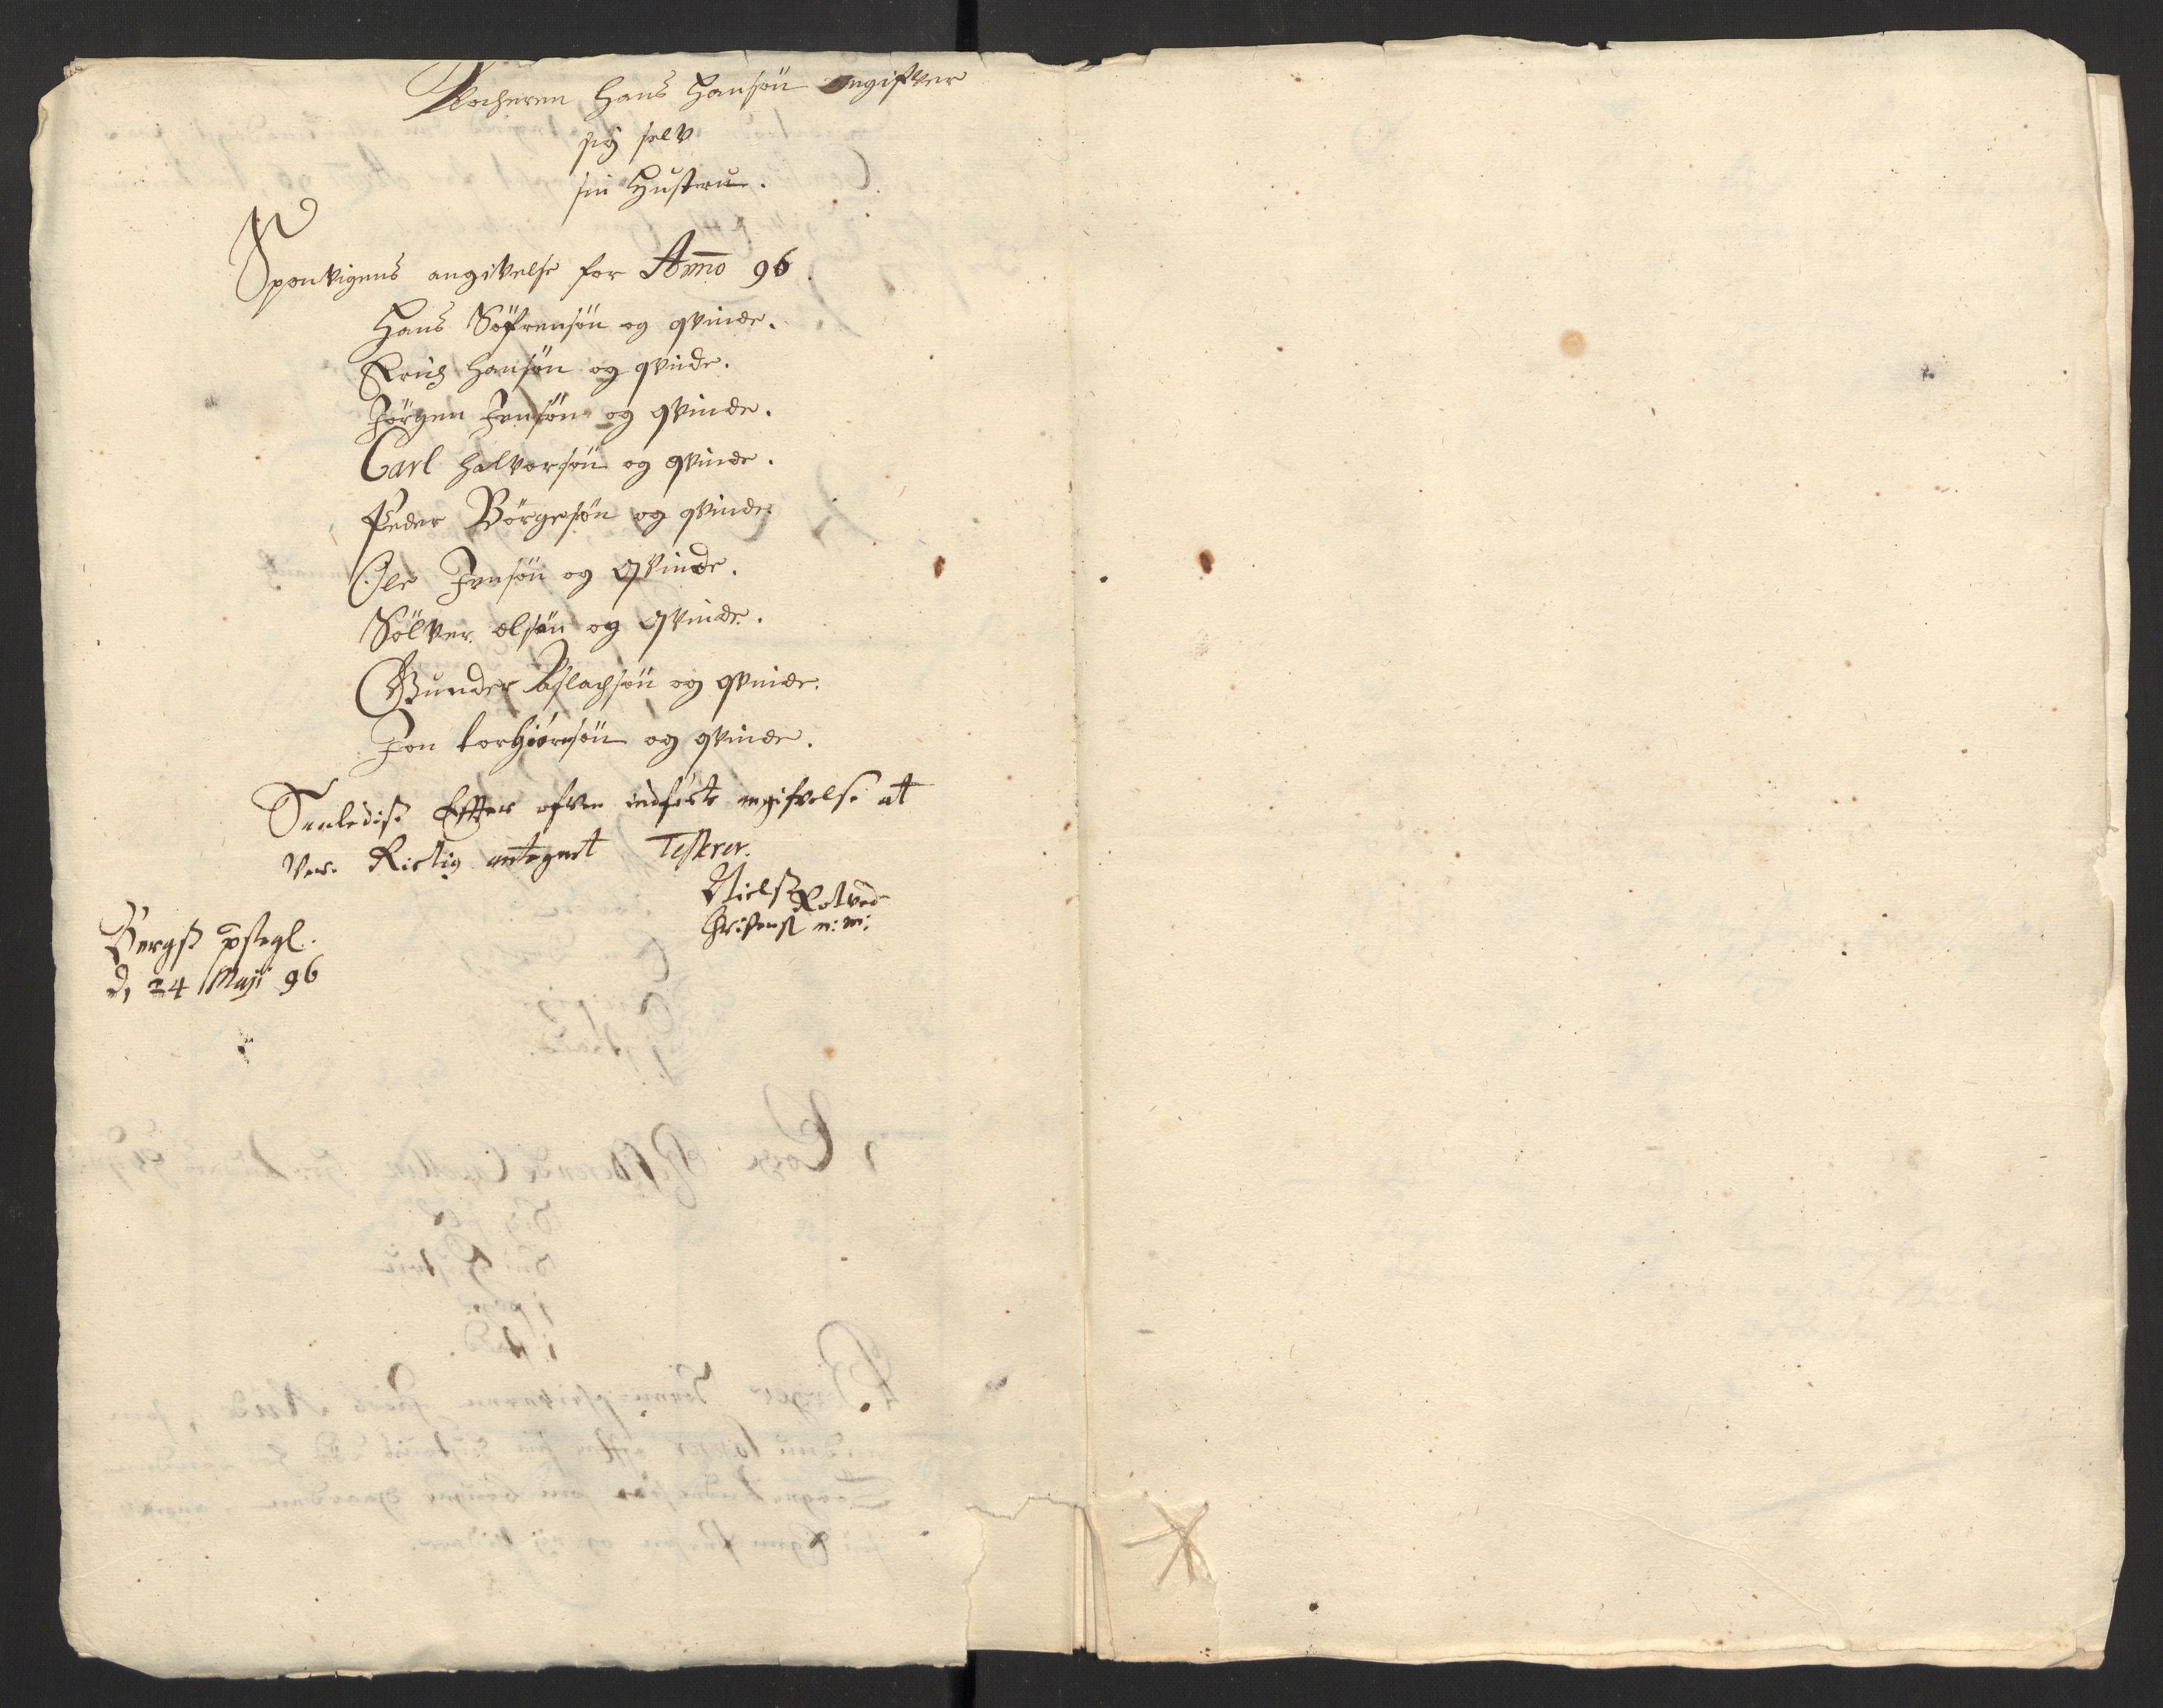 Klocheren Hans Hansøn Angifver
sig selv
sin Hustrue.
Sponvigens angivelse for Anno 96
Hans Söfrensön og qvinde.
Erich Hansön og qvinde.
Jörgen Jensön og qvinde.
Carl Halvorsön og qvinde.
Peder Börgesön og qvinde
Ole Jensön og Qvinde.
Sölver olsön og Qvinde.
Gunder Aslachsön og qvinde.
Jon torbiörnsön og qvinde.
Saaledis Effter ofven indförte angifvelse at
Vere Rictig antegnet Testerer.
Niels
m: m:
Bergs
d, 24 Maji 96